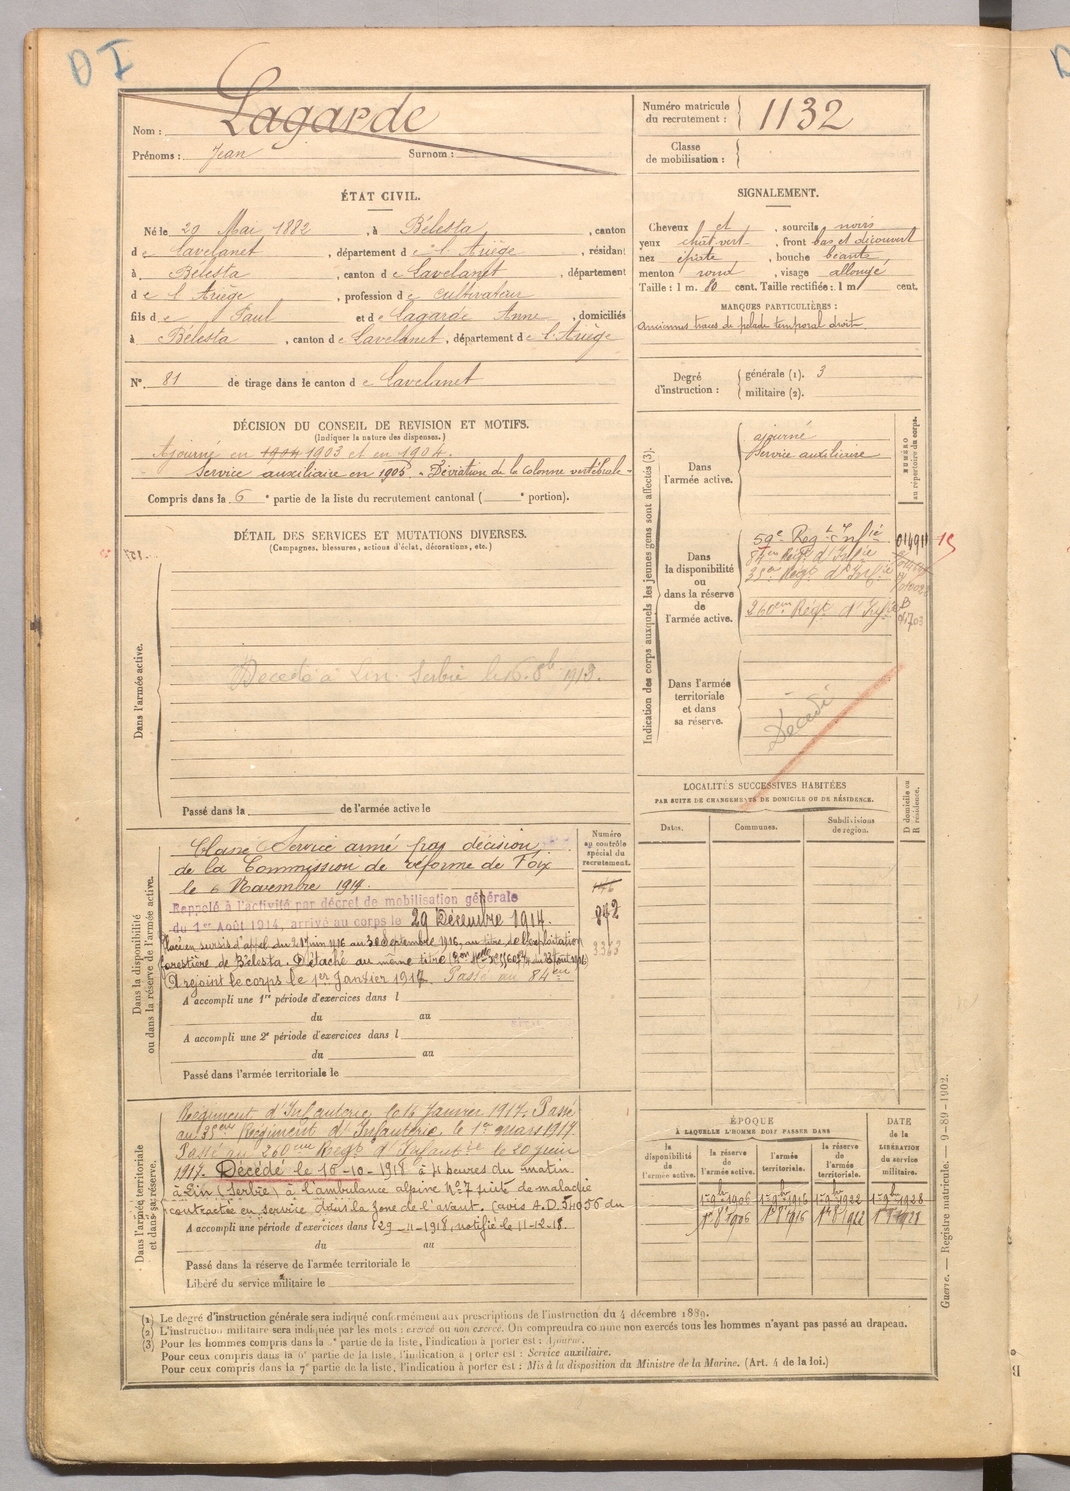 D I
Nom : Lagarde
Prénoms : Jean Surnom :
Numéro matricule du recrutement : 1132
Classe de mobilisation :
ÉTAT CIVIL.
Né le 29 Mai 1882, à Bélesta, canton
de Lavelanet, département de l'Ariège, résidant
à Bélesta, canton de Lavelanet, département
de l'Ariège, profession de cultivateur
fils de Paul et de Lagarde Anne, domiciliés
à Bélesta, canton de Lavelanet, département de l'Ariège
N°. 81 de tirage dans le canton de Lavelanet
SIGNALEMENT.
Cheveux et, sourcils noirs
yeux chât-vert, front bas et découvert
nez épaté, bouche béante,
menton rond, visage allongé
Taille : 1 m. 80 cent. Taille rectifiée : 1 m cent.
MARQUES PARTICULIÈRES :
Anciennes traces de pelade temporal droite
Degré d'instruction : générale (1). 3
militaire (2).
DÉCISION DU CONSEIL DE REVISION ET MOTIFS.
(Indiquer la nature des dispenses.)
Ajourné en 1904 1903 et en 1904.
Service auxiliaire en 1905. - Déviation de la colonne vertébrale -
Compris dans la 6e partie de la liste du recrutement cantonal ( e portion).
DÉTAIL DES SERVICES ET MUTATIONS DIVERSES.
(Campagnes, blessures, actions d'éclat, décorations, etc.)
Dans l'armée active.
Décédé à Lin Serbie le 16. 8b 1918.
Passé dans la de l'armée active le
Indication des corps auxquels les jeunes gens sont affectés (3).
NUMÉRO au répertoire du corps.
Dans l'armée active.
ajourné
Service auxiliaire
Dans la disponibilité ou dans la réserve de l'armée active.
59e Regt Infie 15
84em Regt d'Infie
35em Regt d'Infie
260em Régt d'Infie
Dans l'armée territoriale et dans sa réserve.
Décédé
LOCALITÉS SUCCESSIVES HABITÉES
PAR SUITE DE CHANGEMENTS DE DOMICILE OU DE RÉSIDENCE.
D domicile ou R résidence.
Dates. Communes. Subdivisions de région.
Dans la disponibilité ou dans la réserve de l'armée active.
Numéro au contrôle spécial du recrutement.
146
842
3363
Classé Service armé par décision
de la Commission de réforme de Foix
le 6 Novembre 1914.
Rappelé à l'activité par décret de mobilisation générale
du 1er Août 1914, arrivé au corps le 29 Décembre 1914.
Placé en sursis d'appel du 21 juin 1916 au 30 Septembre 1916, au titre de l'exploitation
forestière de Bélesta. Détaché au même titre
A rejoint le corps le 1er Janvier 1917. Passé au 84em
A accompli une 1re période d'exercices dans l
du au
A accompli une 2e période d'exercices dans l
du au
Passé dans l'armée territoriale le
Dans l'armée territoriale et dans sa réserve.
Régiment d'Infanterie le 16 Janvier 1917. Passé
au 35eme Régiment d'Infanterie le 1er mars 1917.
Passé au 260eme Regt d'Infanterie le 20 juin
1917. Décédé le 16-10-1918 à 4 heures du matin
à Lin (Serbie) à l'ambulance alpine N°7 suite de maladie
contractée en service dans la zone de l'avant. (avis A.D. 54056 du
A accompli une période d'exercices dans l 29-11-1918, notifié le 11-12-18.
du au
Passé dans la réserve de l'armée territoriale le
Libéré du service militaire le
ÉPOQUE
À LAQUELLE L'HOMME DOIT PASSER DANS
DATE de la LIBÉRATION du service militaire.
la disponibilité de l'armée active. la réserve de l'armée active. l'armée territoriale. la réserve de l'armée territoriale.
1er 9bre 1906 1er 9b 1916 1er 9b 1922 1er 9b 1928
1er 8b 1906 1er 8b 1916 1er 8b 1922 1er 8b 1928
Guerre. — Registre matricule. — 9-89-1902.
(1) Le degré d'instruction générale sera indiqué conformément aux prescriptions de l'instruction du 4 décembre 1889.
(2) L'instruction militaire sera indiquée par les mots : exercé ou non exercé. On comprendra comme non exercés tous les hommes n'ayant pas passé au drapeau.
(3) Pour les hommes compris dans la partie de la liste, l'indication à porter est : Ajourné.
Pour ceux compris dans la 6e partie de la liste, l'indication à porter est : Service auxiliaire.
Pour ceux compris dans la 7e partie de la liste, l'indication à porter est : Mis à la disposition du Ministre de la Marine. (Art. 4 de la loi.)